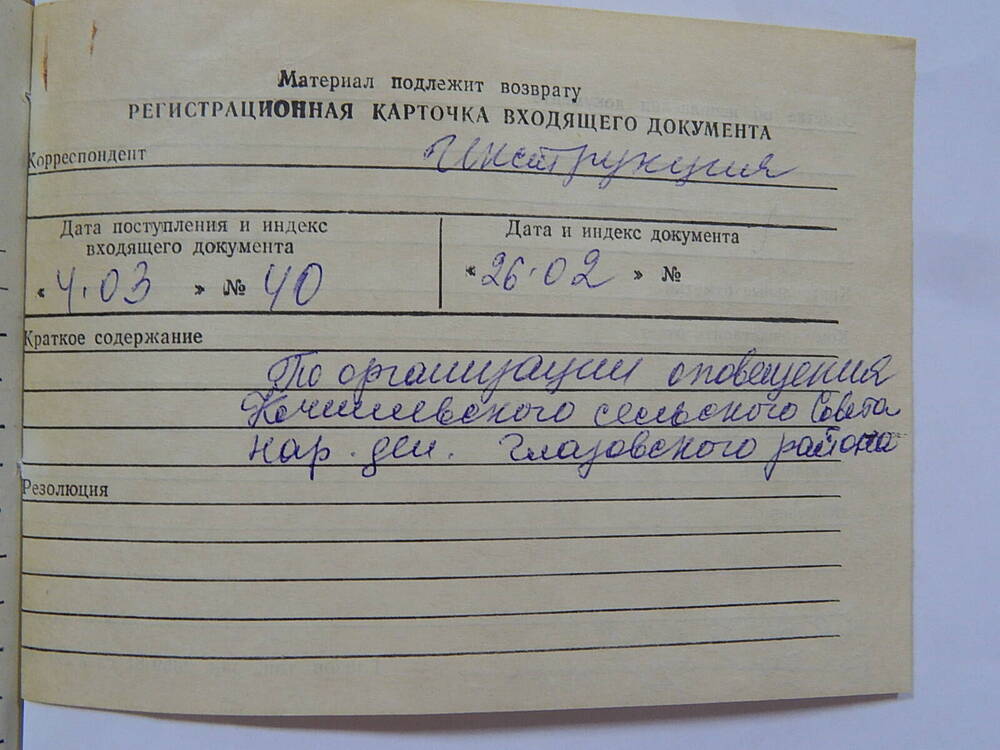 Материал подлежит возврату
РЕГИСТРАЦИОННАЯ КАРТОЧКА ВХОДЯЩЕГО ДОКУМЕНТА
Корреспондент Инструкция
Дата поступления и индекс
входящего документа
« 4.03 » № 40
Дата и индекс документа
« 26.02 » №
Краткое содержание
По организации оповещения
Кочишевского сельского Совета
нар. деп. Глазовского района
Резолюция